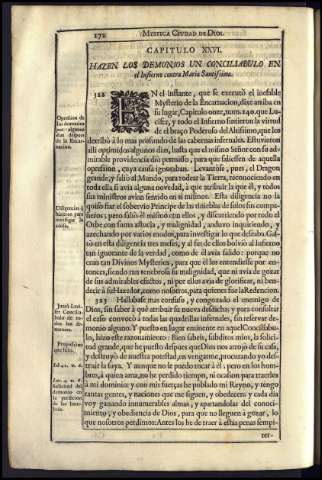 272
MYSTICA CIUDAD DE DIOS.
CAPITULO XXVI.
HAZEN LOS DEMONIOS UN CONCILIABULO EN
el Infierno contra Maria Santissima.
122 EN el instante, que se executó el inefable
Mysterio de la Encarnacion, dixe arriba en
su lugar, Capitulo onze, num. 140. que Lu-
cifer, y todo el Infierno sintieron la virtud
de el braço Poderoso del Altissimo, que los
derribó à lo mas profundo de las cabernas infernales. Estuvieron
alli oprimidos algunos dias, hasta que el mismo Señor con su ad-
mirable providencia dió permisso, para que saliessen de aquella
opression, cuya causa ignoraban. Levantóse, pues, el Dragon
grande, y salió al Mundo, para rodear la Tierra, reconociendo en
toda ella si avia alguna novedad, à que atribuir la que él, y todos
sus ministros avian sentido en si mismos. Esta diligencia no la
quiso fiar el sobervio Principe de las tinieblas de solos sus compa-
ñeros; pero salió él mismo con ellos, y discurriendo por todo el
Orbe con suma astucia, y malignidad, anduvo inquiriendo, y
azechando por varios modos, para investigar lo que deseaba. Gas-
tó en esta diligencia tres meses, y al fin de ellos bolvió al Infierno
tan ignorante de la verdad, como de él avia salido: porque no
eran tan Divinos Mysterios, para que él los entendiesse por en-
tonces, siendo tan tenebrosa su malignidad, que ni avia de gozar
de sus admirables efectos, ni por ellos avia de glorificar, ni ben-
decir à su Hazedor, como nosotros, para quienes fue la Redencion.
123 Hallabase mas confuso, y congoxado el enemigo de
Dios, sin saber à qué atribuir su nueva desdicha; y para consultar
el caso convocó à todas las quadrillas infernales, sin reservar de-
monio alguno. Y puesto en lugar eminente en aquel Conciliabu-
lo, hizo este razonamiento: Bien sabeis, subditos mios, la solici-
tud grande, que he puesto despues que Dios nos arrojó de su casa,
y destruyó de nuestra potestad, en vengarme, procurando yo des-
truir la suya. Y aunque no le puedo tocar à él; pero en los hom-
bres, à quien ama, no he perdido tiempo, ni ocasion para traerlos
à mi dominio: y con mis fuerças he poblado mi Reyno, y tengo
tantas gentes, y naciones que me siguen, y obedecen; y cada dia
voy ganando innumerables almas, y apartandolas del conoci-
miento, y obediencia de Dios, para que no lleguen à gozar, lo
que nosotros perdimos: Antes los he de traer à estas penas sempi-
ter-
Opression de
los demonios
por algunos
dias despues
de la Encar-
nacion.
Diligencias q̃
hizieron para
investigar la
causa.
Juntó Luci-
fer Concilia-
bulo de to-
dos los de-
monios.
Proposicion
que hizo.
Solicitud del
demonio en
la perdicion
de los hom-
bres.